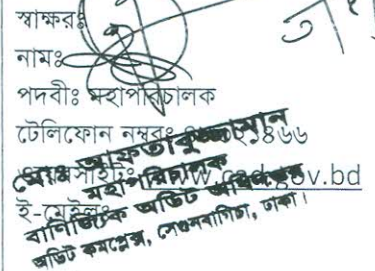 স্বাক্ষরঃ
নামঃ
পদবীঃ মহাপরিচালক
টেলিফোন নম্বরঃ ১৪৬৬
ওয়েবসাইটঃ www.cad.gov.bd
ই-মেইলঃ
মোঃ আফতাবুজ্জামান
মহাপরিচালক
বাণিজ্যিক অডিট অধিদপ্তর
অডিট কমপ্লেক্স, সেগুনবাগিচা, ঢাকা।